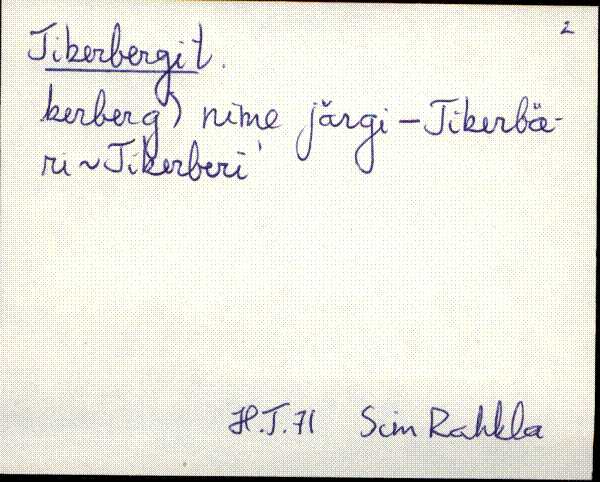 2
Tikerbergi t.
kerberg) nime järgi – Tikerbä-
ri ~ Tikerberi'
H.T. 71 Sim Rahkla